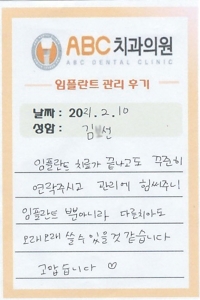 ABC치과의원
ABC DENTAL CLINIC
임플란트 관리 후기
날짜 : 2021. 2. 10
성함 : 김 선
임플란트 치료가 끝나고도 꾸준히
연락주시고 관리에 힘써주니
임플란트 뿐아니라 다른치아도
오래오래 쓸 수 있을것 같습니다
고맙습니다 ♡